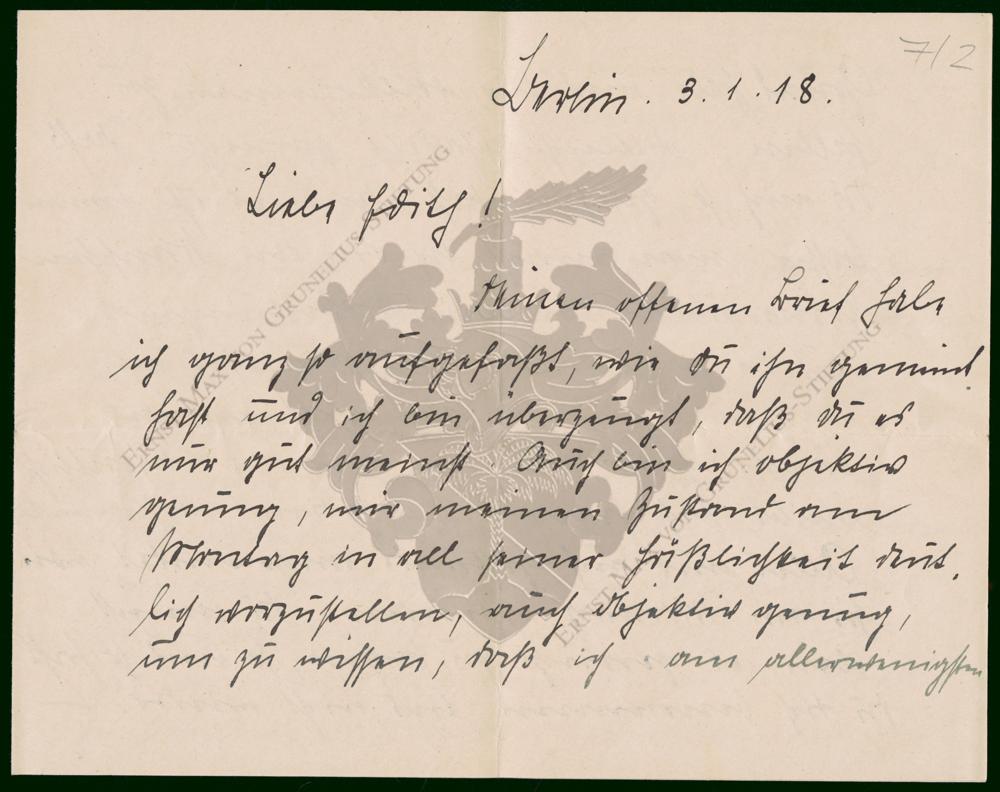 7/2
Berlin. 3.1.18.
Liebe Edith!
Deinen offenen Brief habe
ich ganz so aufgefaßt, wie Du ihn gemeint
hast und ich bin überzeugt, daß Du es
nur gut meinst. Auch bin ich objektiv
genung, mir meinen Zustand am
Montag in all seiner Häßlichkeit deut-
lich vorzustellen, auch objektiv genug,
um zu wissen, daß ich am allerwenigsten
ERNST MAX VON GRUNELIUS-STIFTUNG
ERNST MAX VON GRUNELIUS-STIFTUNG